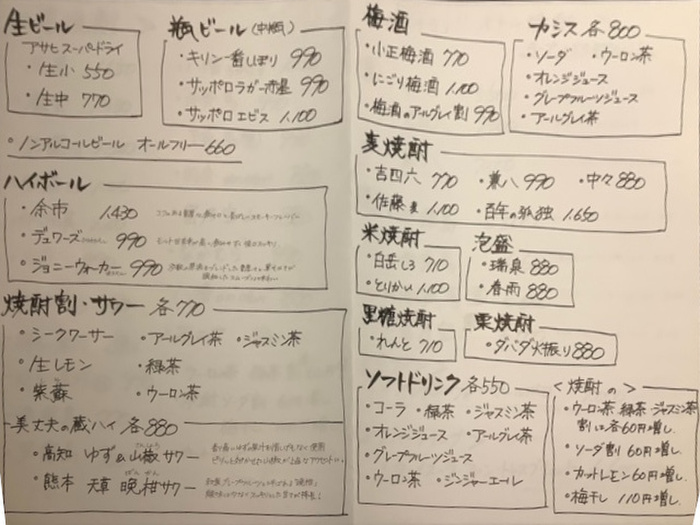 生ビール
アサヒスーパードライ
・生小 550
・生中 770
瓶ビール(中瓶)
・キリン一番しぼり 990
・サッポロラガー赤星 990
・サッポロエビス 1,100
・ノンアルコールビール オールフリー 660
ハイボール
・余市 1,430
・デュワーズ 990
・ジョニーウォーカー 990
焼酎割・サワー 各770
・シークワーサー ・アールグレイ茶 ・ジャスミン茶
・生レモン ・緑茶
・紫蘇 ・ウーロン茶
美丈夫の蔵ハイ 各880
・高知 ゆず&山椒サワー
・熊本 天草 晩柑サワー
梅酒
・小正梅酒 770
・にごり梅酒 1,100
・梅酒のアールグレイ割 990
カシス 各800
・ソーダ ・ウーロン茶
・オレンジジュース
・グレープフルーツジュース
・アールグレイ茶
麦焼酎
・吉四六 770 ・兼八 990 ・中々 880
・佐藤 麦 1,100 ・百年の孤独 1,650
米焼酎
・白岳しろ 710
・とりかい 1,100
泡盛
・瑞泉 880
・春雨 880
黒糖焼酎
・れんと 710
栗焼酎
・ダバダ火振り 880
ソフトドリンク 各550
・コーラ ・緑茶 ・ジャスミン茶
・オレンジジュース ・アールグレイ茶
・グレープフルーツジュース
・ウーロン茶 ・ジンジャーエール
<焼酎の>
・ウーロン茶 緑茶 ジャスミン茶
割は各60円増し.
・ソーダ割 60円増し.
・カットレモン 60円増し.
・梅干し 110円増し.